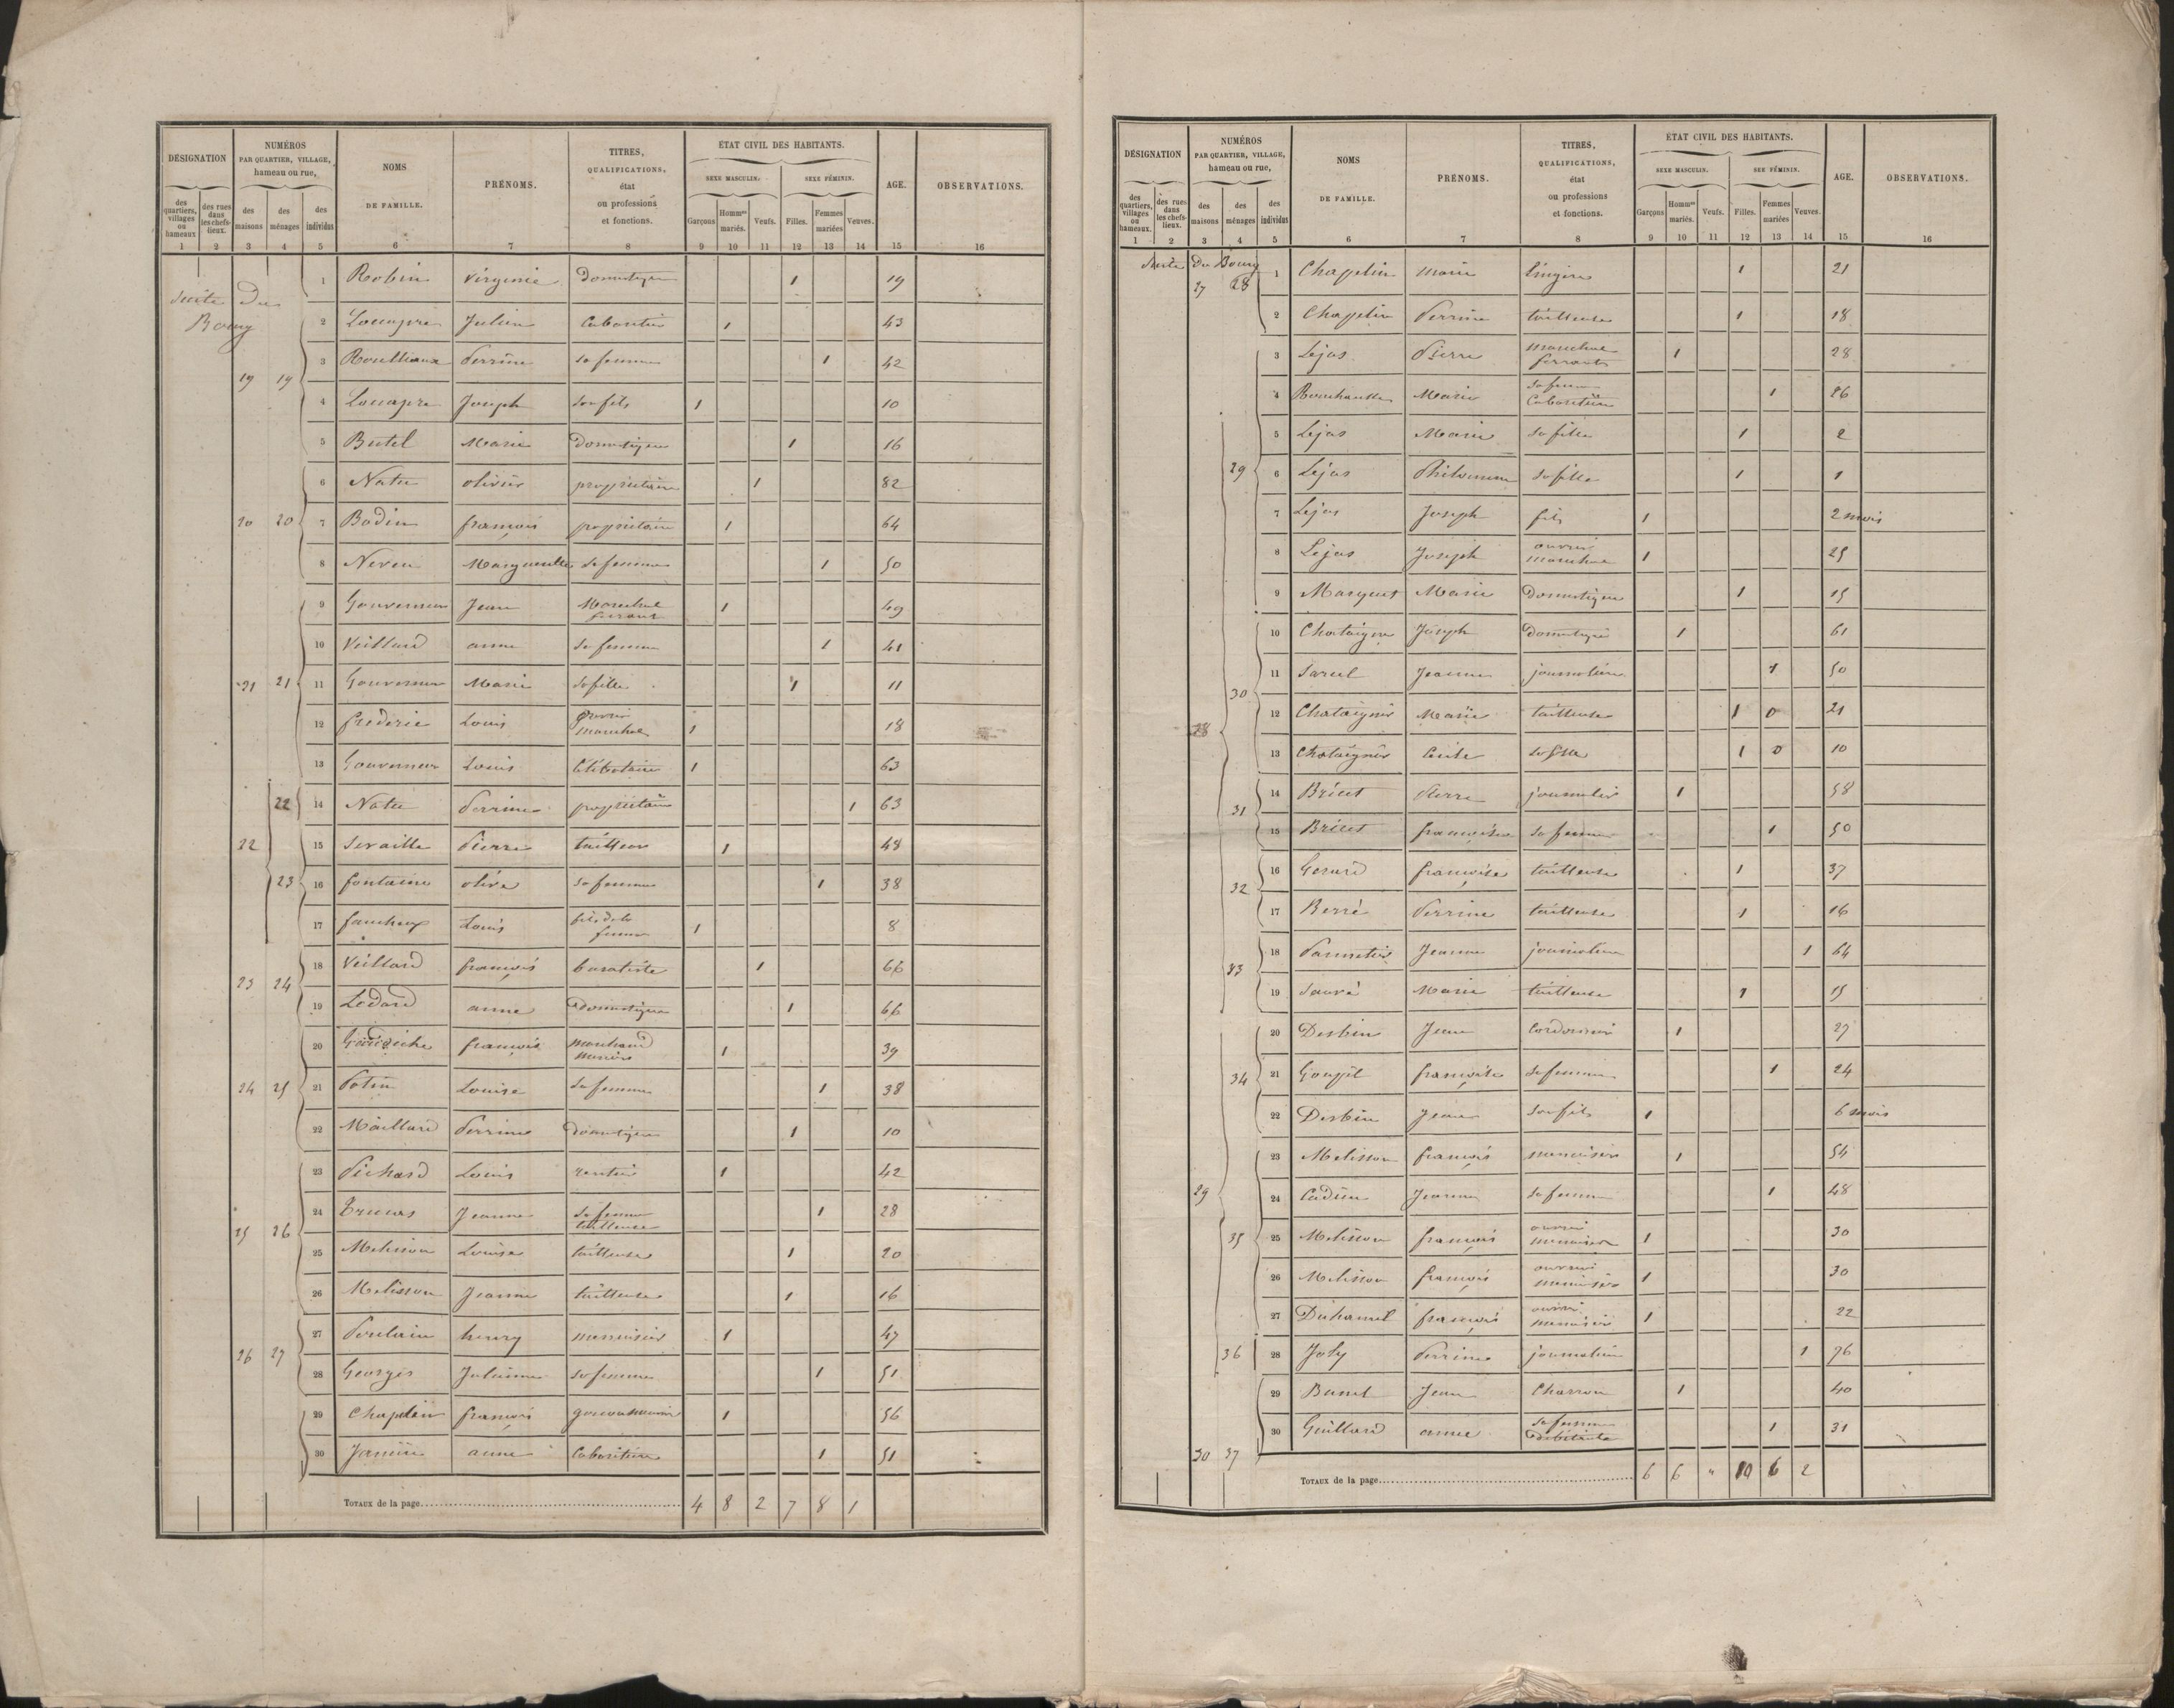 DÉSIGNATION
NUMÉROS
PAR QUARTIER, VILLAGE,
hameau ou rue,
NOMS
DE FAMILLE.
PRÉNOMS.
TITRES,
QUALIFICATIONS,
état
ou professions
et fonctions.
ÉTAT CIVIL DES HABITANTS.
SEXE MASCULIN.
SEXE FÉMININ.
AGE.
OBSERVATIONS.
des quartiers, villages ou hameaux.
des rues dans les chefs-lieux.
des maisons
des ménages
des individus
Garçons
Hommes mariés.
Veufs.
Filles.
Femmes mariées
Veuves.
1 2 3 4 5 6 7 8 9 10 11 12 13 14 15 16
Suite Du
Bourg
1 Robin Virginie Domestique 1 19
2 Louapre Julien Cabaretier 1 43
3 Perrine sa femme 1 42
19 19
4 Louapre Joseph son fils 1 10
5 Butel Marie Domestique 1 16
6 Natu olivier propriétaire 1 82
20 20 7 Bodin françois propriétaire 1 64
8 Neveu Marguerite sa femme 1 50
9 Gouverneur Jean Marechal ferrant 1 49
10 Veillard anne sa femme 1 41
21 21 11 Gouverneur Marie sa fille 1 11
12 frederic Louis ouvrier marechal 1 18
13 Gouverneur Louis Célibataire 1 63
22 14 Natu Perrine propriétaire 1 63
22 15 Seraille Pierre tailleur 1 48
23 16 fontaine olive sa femme 1 38
17 faucheux Louis fils de la femme 1 8
18 Veillard françois 1 66
23 24
19 Ledard anne Domestique 1 66
20 françois marchand 1 39
24 25 21 Potin Louise sa femme 1 38
22 Maillard Perrine Domestique 1 10
23 Pichard Louis rentier 1 42
24 Jeanne sa femme tailleuse 1 28
25 26
25 Melisson Louise tailleuse 1 20
26 Melisson Jeanne tailleuse 1 16
27 Poulain henry menuisier 1 47
26 27
28 Georges Julienne sa femme 1 51
29 Chaplain françois 1 56
30 Jamin anne Cabaretière 1 51
TOTAUX de la page 4 8 2 7 8 1
DÉSIGNATION
NUMÉROS
PAR QUARTIER, VILLAGE,
hameau ou rue,
NOMS
DE FAMILLE.
PRÉNOMS.
TITRES,
QUALIFICATIONS,
état
ou professions
et fonctions.
ÉTAT CIVIL DES HABITANTS.
SEXE MASCULIN.
SEE FÉMININ.
AGE.
OBSERVATIONS.
des quartiers, villages ou hameaux.
des rues dans les chefs-lieux.
des maisons
des ménages
des individus
Garçons
Hommes mariés.
Veufs.
Filles.
Femmes mariées
Veuves.
1 2 3 4 5 6 7 8 9 10 11 12 13 14 15 16
Suite Du Bourg
27 28
1 Chapelin Marie lingère 1 21
2 Chapelin Perrine tailleuse 1 18
3 Lejas Pierre marechal ferrant 1 28
4 Marie sa femme Cabaretière 1 26
5 Lejas Marie sa fille 1 2
29 6 Lejas Philomene sa fille 1 1
7 Lejas Joseph fils 1 2 mois
8 Lejas Joseph ouvrier marechal 1 25
9 Marquet Marie Domestique 1 15
10 Chataigner Joseph Domestique 1 61
11 Jeanne journalière 1 50
30
12 Chataigner Marie tailleuse 1 0 21
28
13 Chataigner Cecile sa fille 1 0 10
14 Bricet Pierre journalier 1 58
31
15 Bricet françoise sa femme 1 50
16 Gerard françoise tailleuse 1 37
32
17 Berré Perrine tailleuse 1 16
18 Parmetier Jeanne journalière 1 64
33
19 Sauvé Marie tailleuse 1 15
20 Desbin Jean Cordonnier 1 27
34 21 Goupil françoise sa femme 1 24
22 Desbin Jean son fils 1 6 mois
23 Melisson françois menuisier 1 54
29 24 Cadieu Jeanne sa femme 1 48
35 25 Melisson françois ouvrier menuisier 1 30
26 Melisson françois ouvrier menuisier 1 30
27 Duhamel françois ouvrier menuisier 1 22
36 28 Joly Perrine journalière 1 76
29 Bunel Jean Charron 1 40
30 Guillard anne sa femme débitante 1 31
30 37
TOTAUX de la page 6 6 " 10 6 2